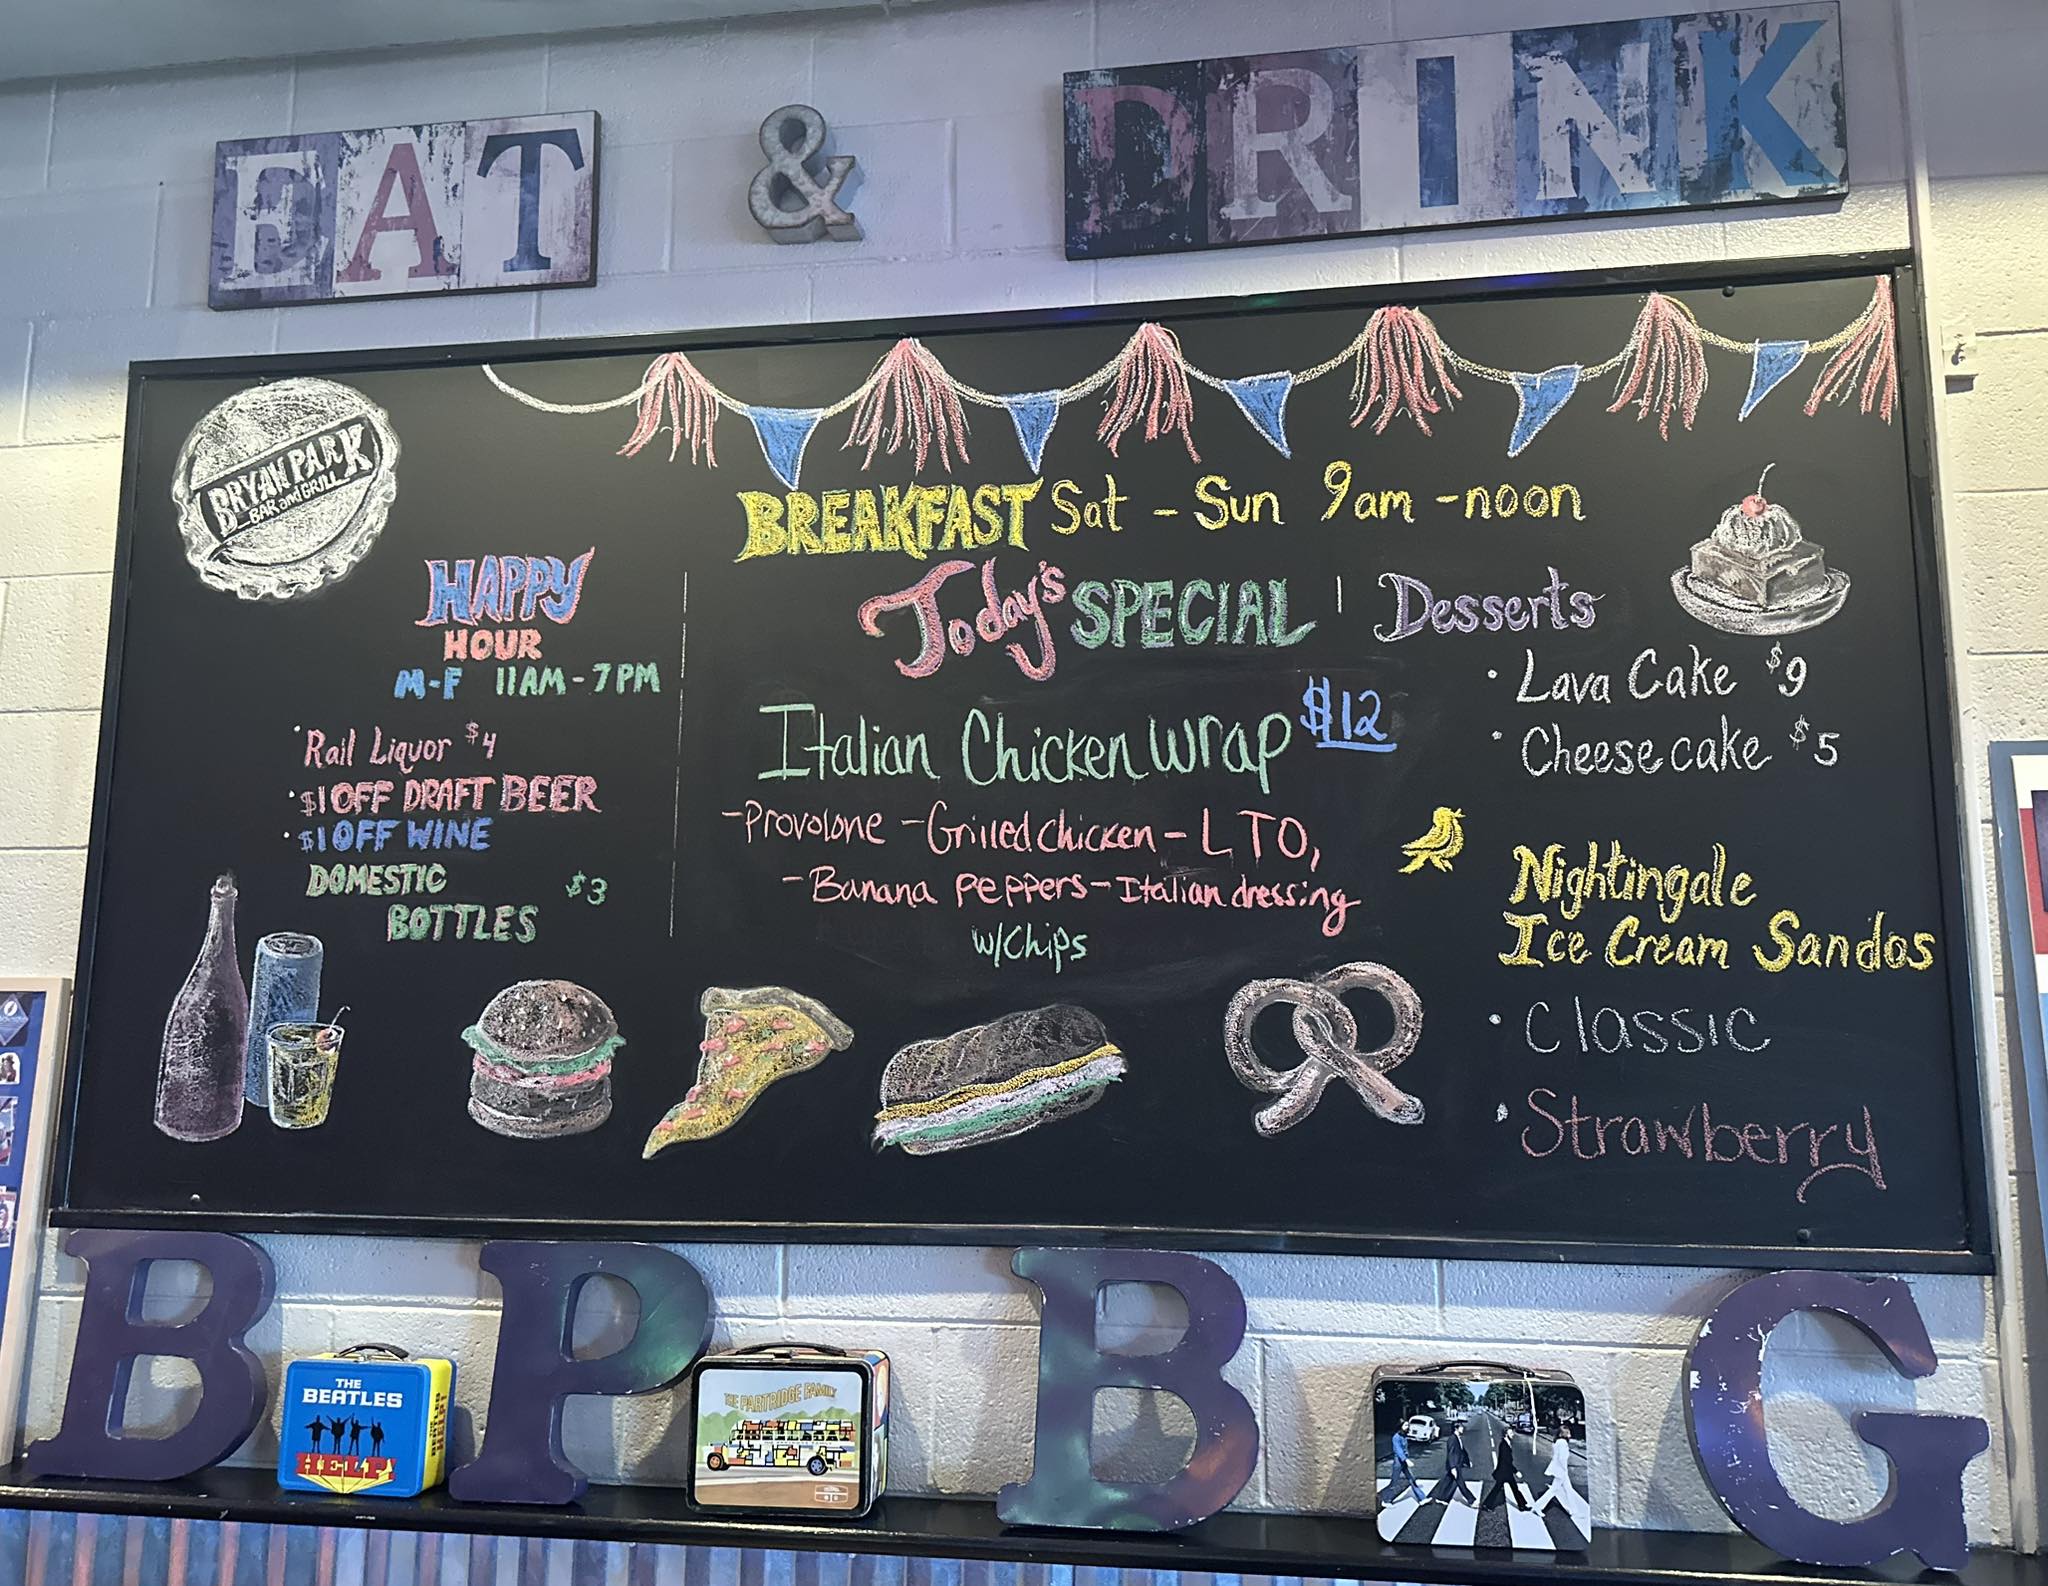 EAT & DRINK
BRYAN PARK
BAR and GRILL
BREAKFAST Sat - Sun 9am - noon
HAPPY
HOUR
M-F 11AM - 7PM
· Rail Liquor $4
· $1 OFF DRAFT BEER
· $1 OFF WINE
DOMESTIC $3
BOTTLES
Today's SPECIAL
Italian Chicken Wrap $12
- Provolone - Grilled chicken - LTO,
- Banana peppers - Italian dressing
w/Chips
Desserts
· Lava Cake $9
· Cheesecake $5
Nightingale
Ice Cream Sandos
· Classic
· Strawberry
B P B G
THE
BEATLES
HELP!
THE PARTRIDGE FAMILY